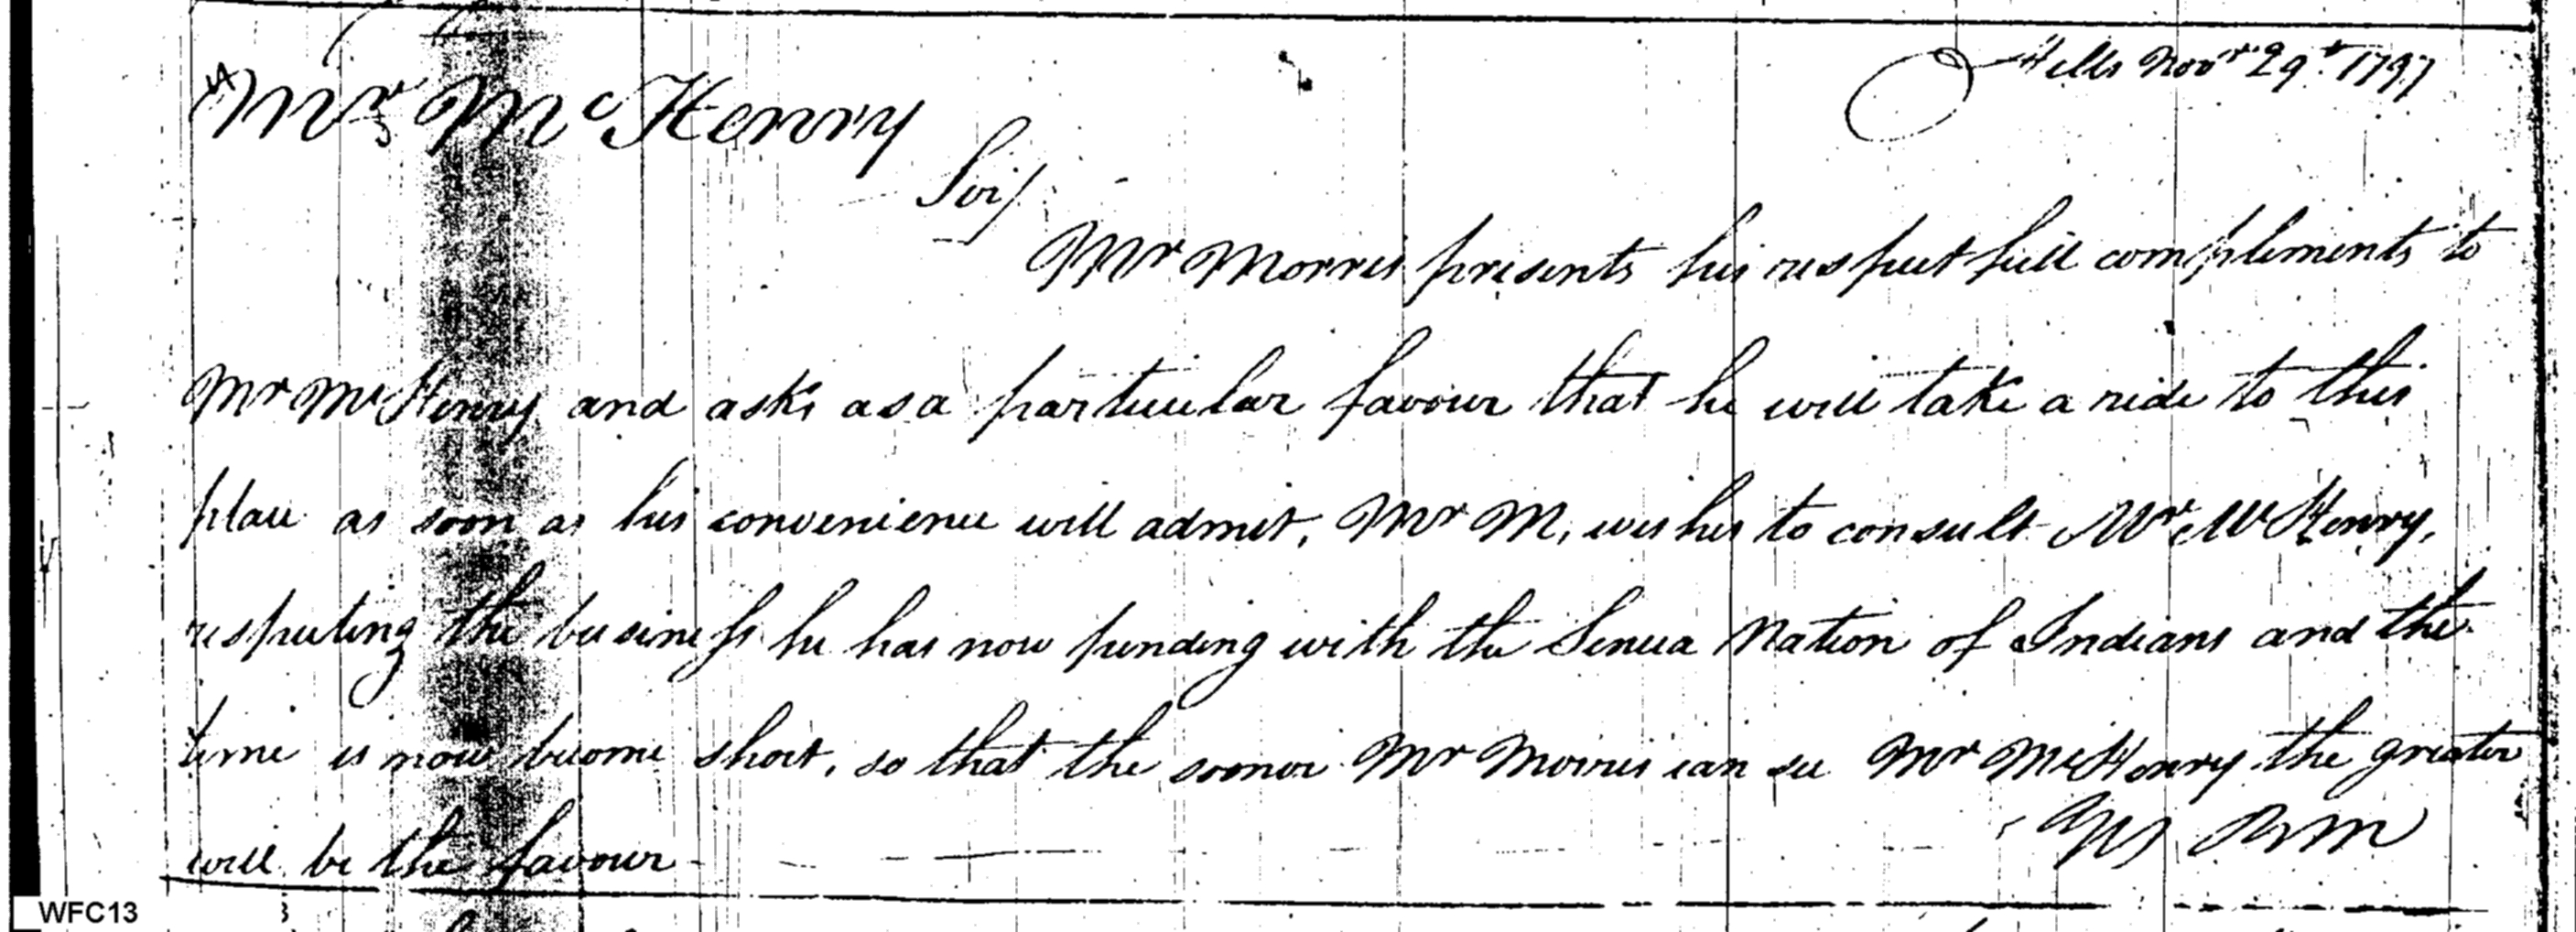 Hills Novr 29th 1797
Mr McHenry
Sir/
Mr Morris presents his respectfull compliments to
Mr McHenry and asks as a particular favour that he will take a ride to this
place as soon as his convenience will admit, Mr M, wishes to consult Mr McHenry,
respecting the business he has now pending with the Seneca Nation of Indians and the
time is now become short, so that the sooner Mr Morris can see Mr McHenry the greater
will be the favour
RM
WFC13